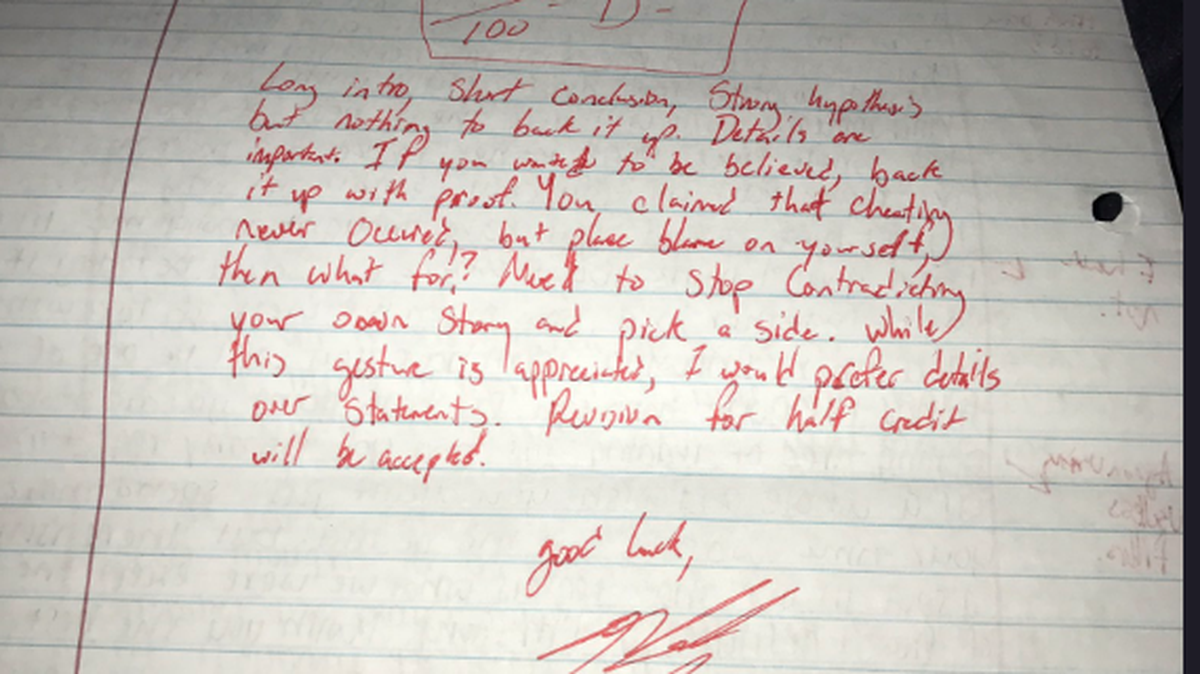 100 D-
Long intro, Short Conclusion, Strong hypothesis
but nothing to back it up. Details are
important. If you wanted to be believed, back
it up with proof. You claimed that cheating
never Occured, but place blame on yourself,
then what for!? Need to Stop Contradicting
your own Story and pick a side. While
this gesture is appreciated, I would prefer details
over Statements. Revision for half credit
will be accepted.
good luck,